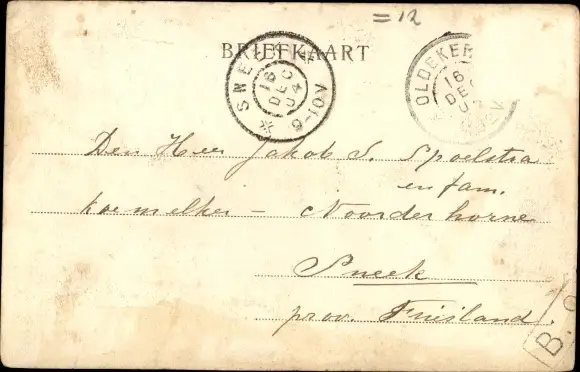 =12
BRIEFKAART
SNEEK
16
DEC
04
9-10V
OLDEKER
16
DEC
Den Heer Jakob S. Spoelstra
en fam.
koemelker – Noorderhorne
Sneek
prov. Friesland.
B.